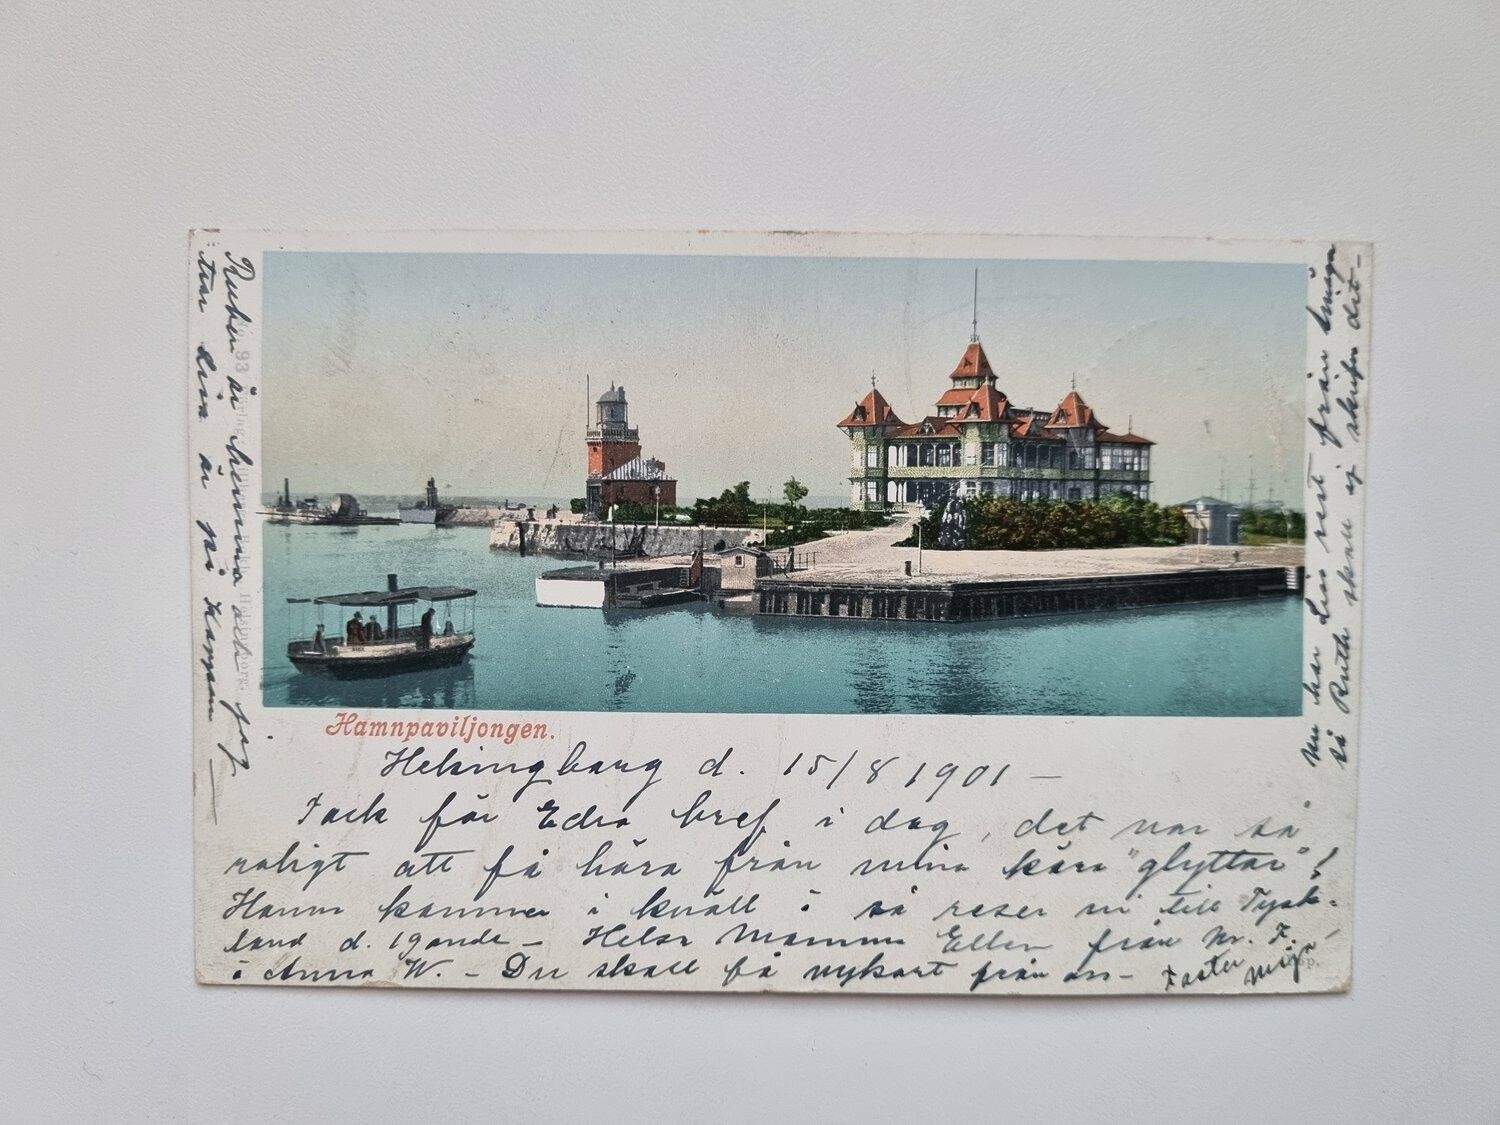 Hamnpaviljongen.
Helsingborg d. 15/8 1901 –
Tack för Edra bref i dag, det var så
roligt att få höra från mina kära "glyttar"!
Hanna kommer i kväll o så reser vi till Tysk-
land d. 19ande – Helsa Mamma Ellen från Mr. F.
o Anna W. – Du skall få vykort från
Faster
Ruben är hemma och jag
tror Lisa är på
nu har Lisa rest från
så Ruth skall ej skrifva dit –
93